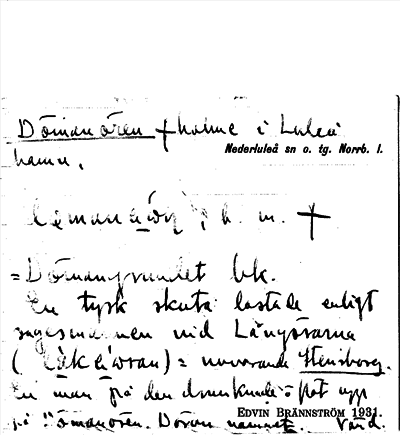 Dömanören † holme i Luleå
hamn.
Nederluleå sn o. tg. Norrb. l.
h. m. †
= Dömangrundet bk.
En tysk skuta lastade enligt
sägesmannen vid Långörarna
( ) = nuvarande Stensborg.
En man på den drunknade o flöt upp
på Dömanören. Därav namnet. Värd.
EDVIN BRÄNNSTRÖM 1931.